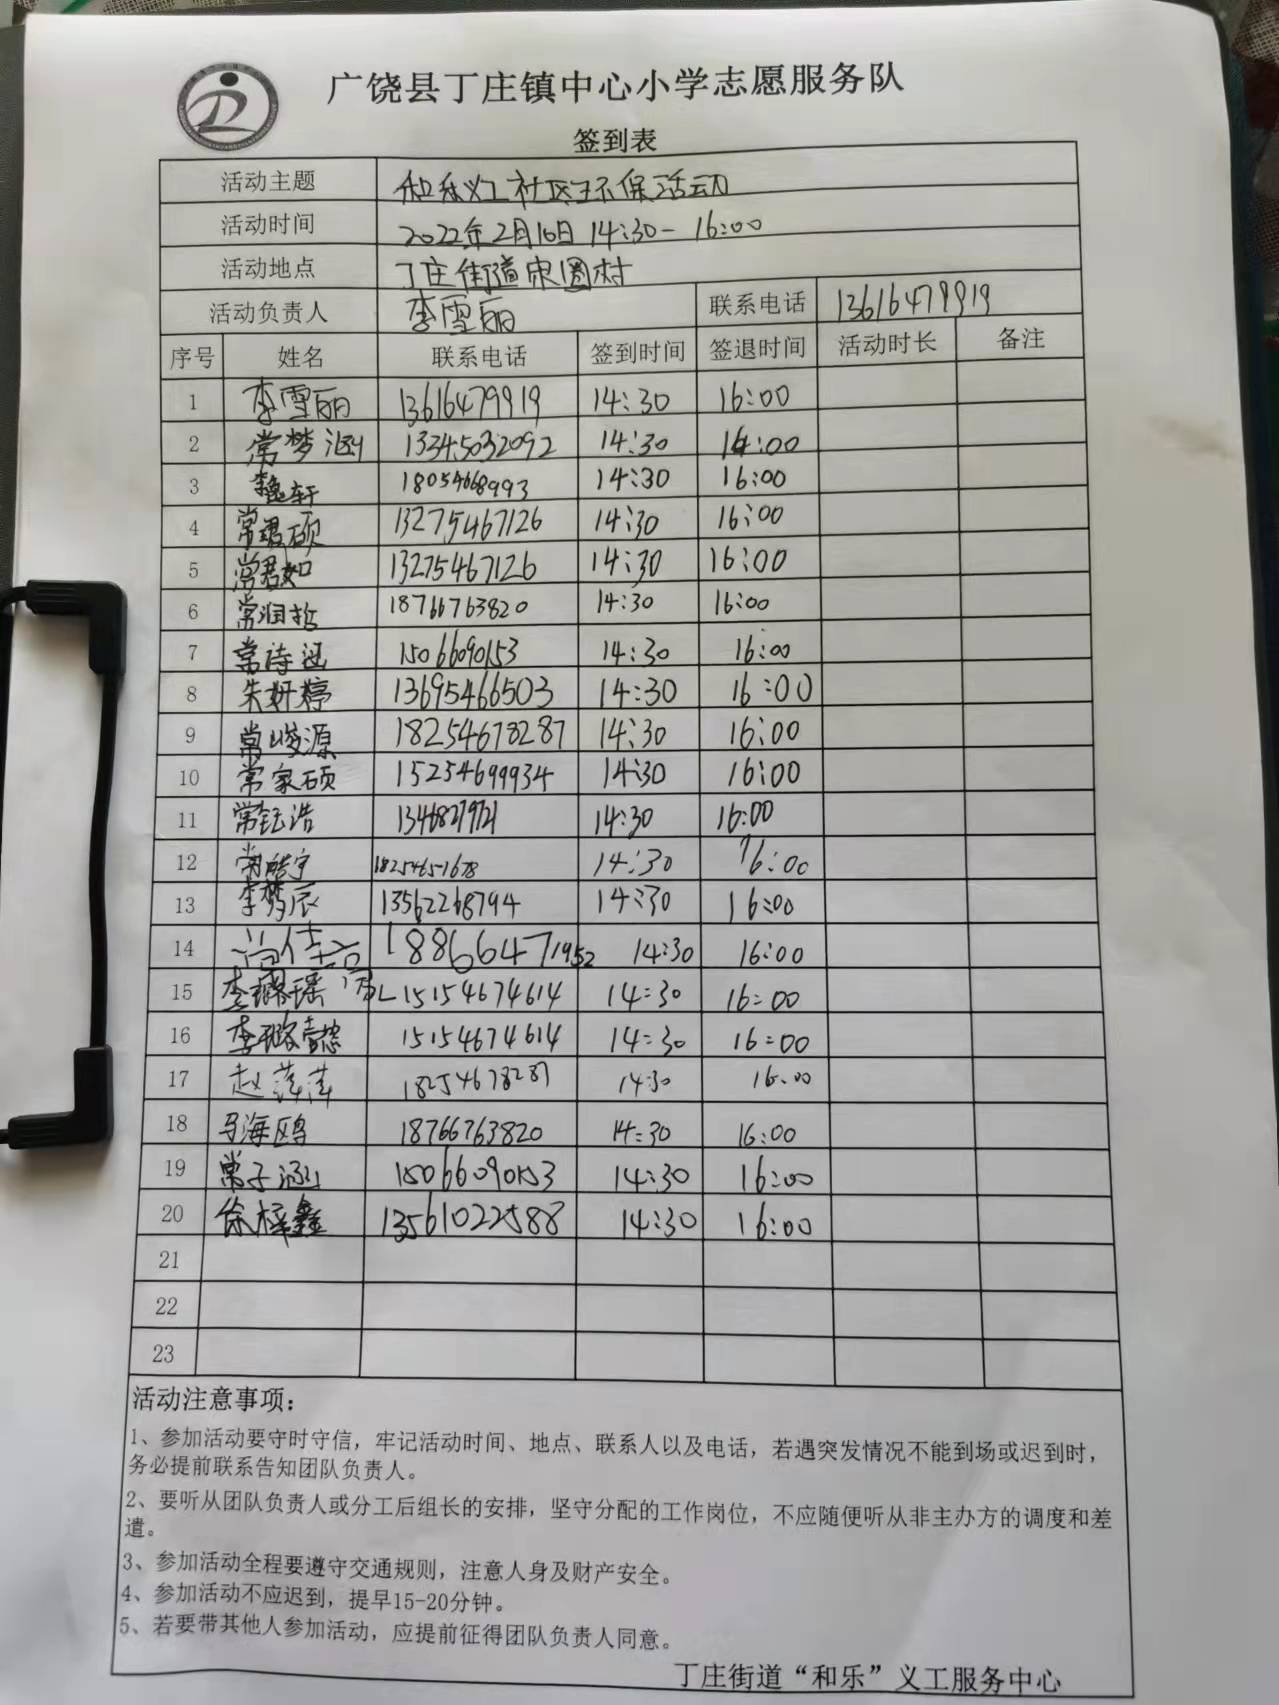 广饶县丁庄镇中心小学志愿服务队
签到表
活动主题 和乐义工社区环保活动
活动时间 2022年2月10日 14:30-16:00
活动地点 丁庄街道宋圈村
活动负责人 李雪丽 联系电话 13616479919
序号 姓名 联系电话 签到时间 签退时间 活动时长 备注
1 李雪丽 13616479919 14:30 16:00
2 常梦涵 13345032092 14:30 16:00
3 轩 18054668993 14:30 16:00
4 常君硕 13275467126 14:30 16:00
5 常君如 13275467126 14:30 16:00
6 常润哲 18766763820 14:30 16:00
7 常诗涵 15066090153 14:30 16:00
8 朱妍婷 13695466503 14:30 16:00
9 常峻源 18254678287 14:30 16:00
10 常家硕 15254699934 14:30 16:00
11 常钰浩 14:30 16:00
12 常皓宇 18254651678 14:30 16:00
13 李梦辰 13562268794 14:30 16:00
14 尚佳 18866471952 14:30 16:00
15 李璐瑶 15154674614 14:30 16:00
16 李璐懿 15154674614 14:30 16:00
17 赵萍萍 18254678287 14:30 16:00
18 马海鸥 18766763820 14:30 16:00
19 常子涵 15066090153 14:30 16:00
20 徐梓鑫 13561022588 14:30 16:00
21
22
23
活动注意事项：
1、参加活动要守时守信，牢记活动时间、地点、联系人以及电话，若遇突发情况不能到场或迟到时，
务必提前联系告知团队负责人。
2、要听从团队负责人或分工后组长的安排，坚守分配的工作岗位，不应随便听从非主办方的调度和差
遣。
3、参加活动全程要遵守交通规则，注意人身及财产安全。
4、参加活动不应迟到，提早15-20分钟。
5、若要带其他人参加活动，应提前征得团队负责人同意。
丁庄街道“和乐”义工服务中心